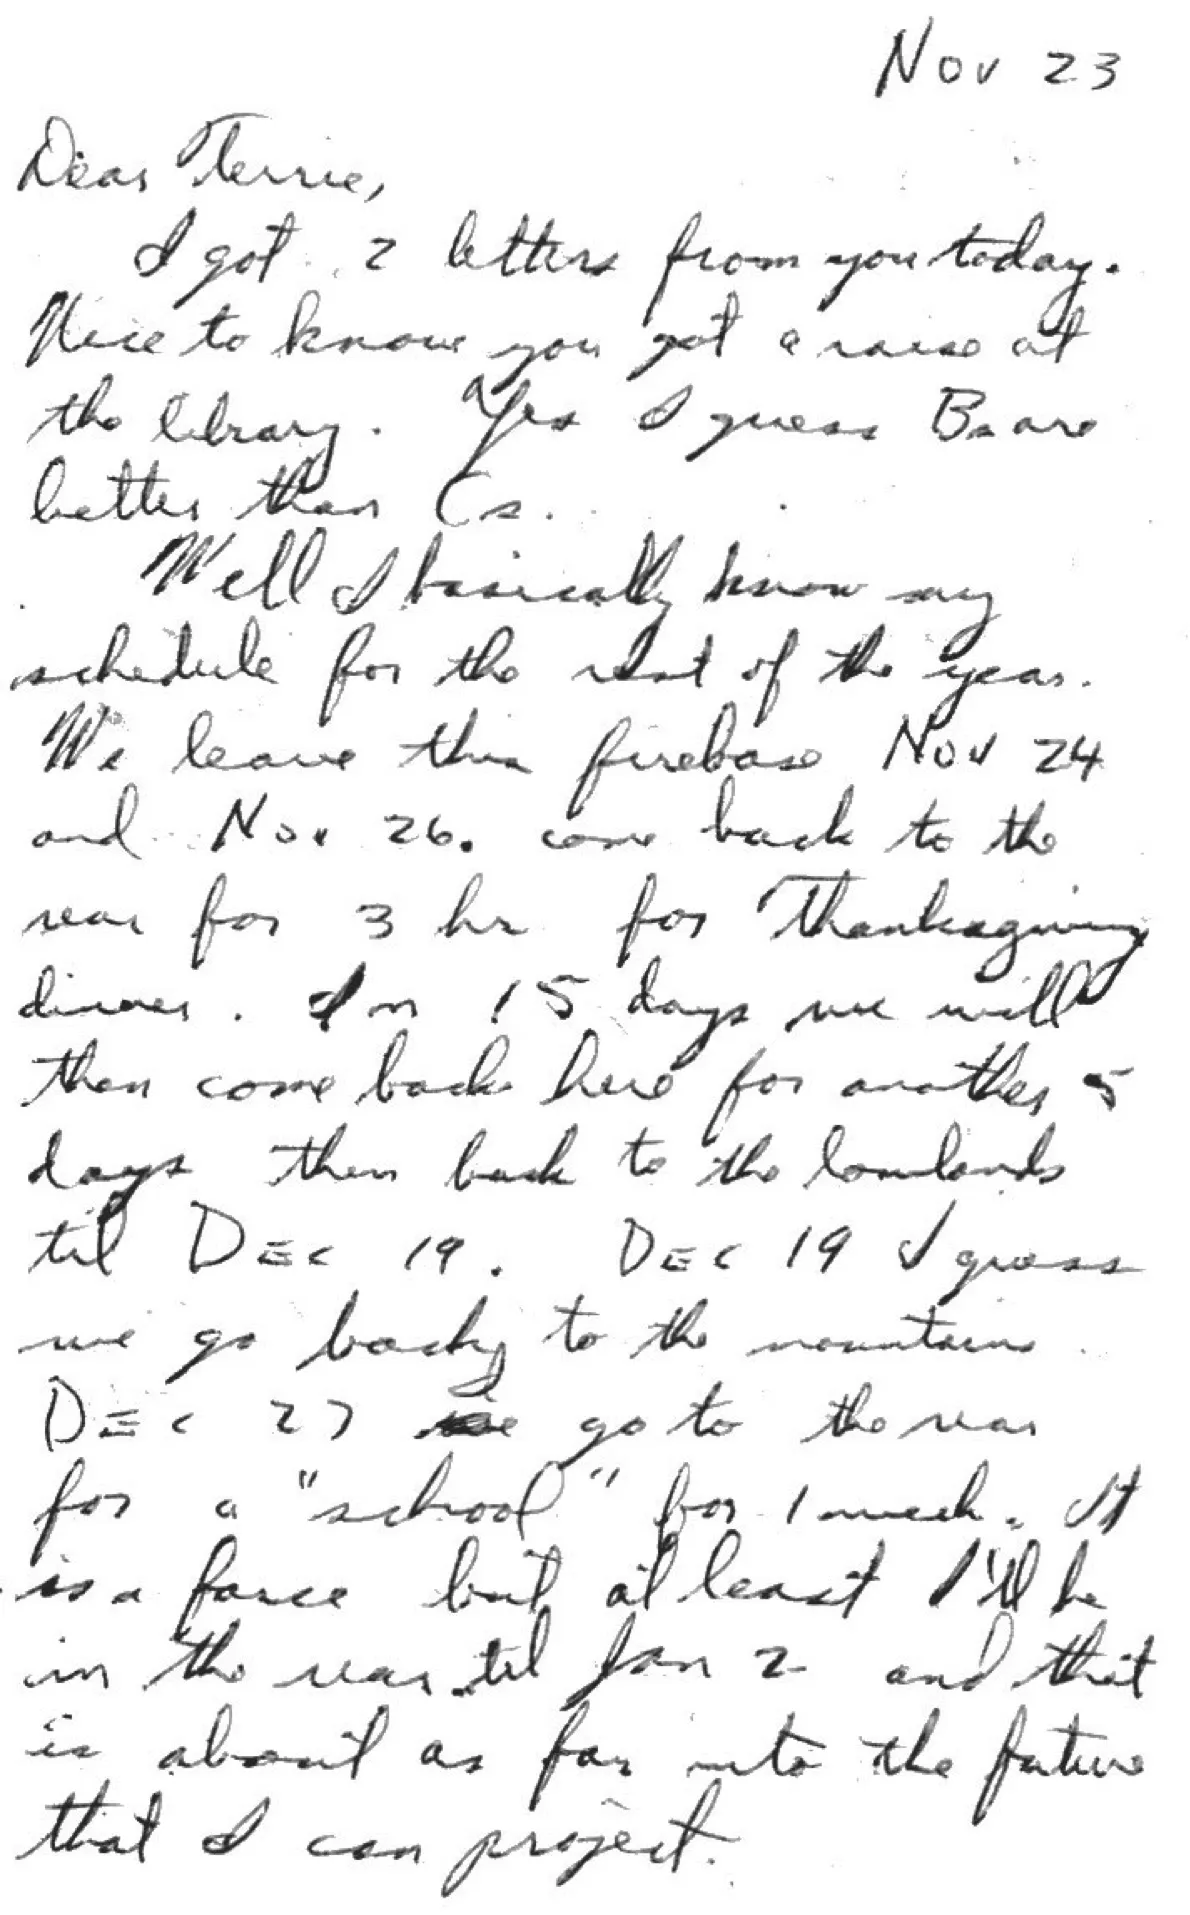 Nov 23
Dear Terrie,
I got 2 letters from you today.
Nice to know you got a raise at
the library. Yes I guess Bs are
better than Cs.
Well I basically know my
schedule for the rest of the year.
We leave this firebase Nov 24
and Nov 26. come back to the
rear for 3 hr for Thanksgiving
dinner. In 15 days we will
then come back here for another 5
days then back to the lowlands
til DEC 19. DEC 19 I guess
we go back to the mountains
DEC 27 we go to the rear
for a "school" for 1 week. It
is a farce but at least I'll be
in the rear til Jan 2 and that
is about as far into the future
that I can project.